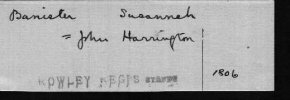 Banister Susannah
= John Harrington
ROWLEY REGIS STAFFS 1806